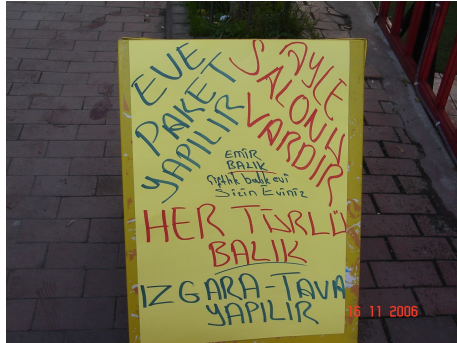 EVE
PAKET
YAPILIR
AYLE
SALONU
VARDIR
EMİR
BALIK
Çiftlik balık evi
Sizin Eviniz
HER TÜRLÜ
BALIK
IZGARA-TAVA
YAPILIR
16 11 2006